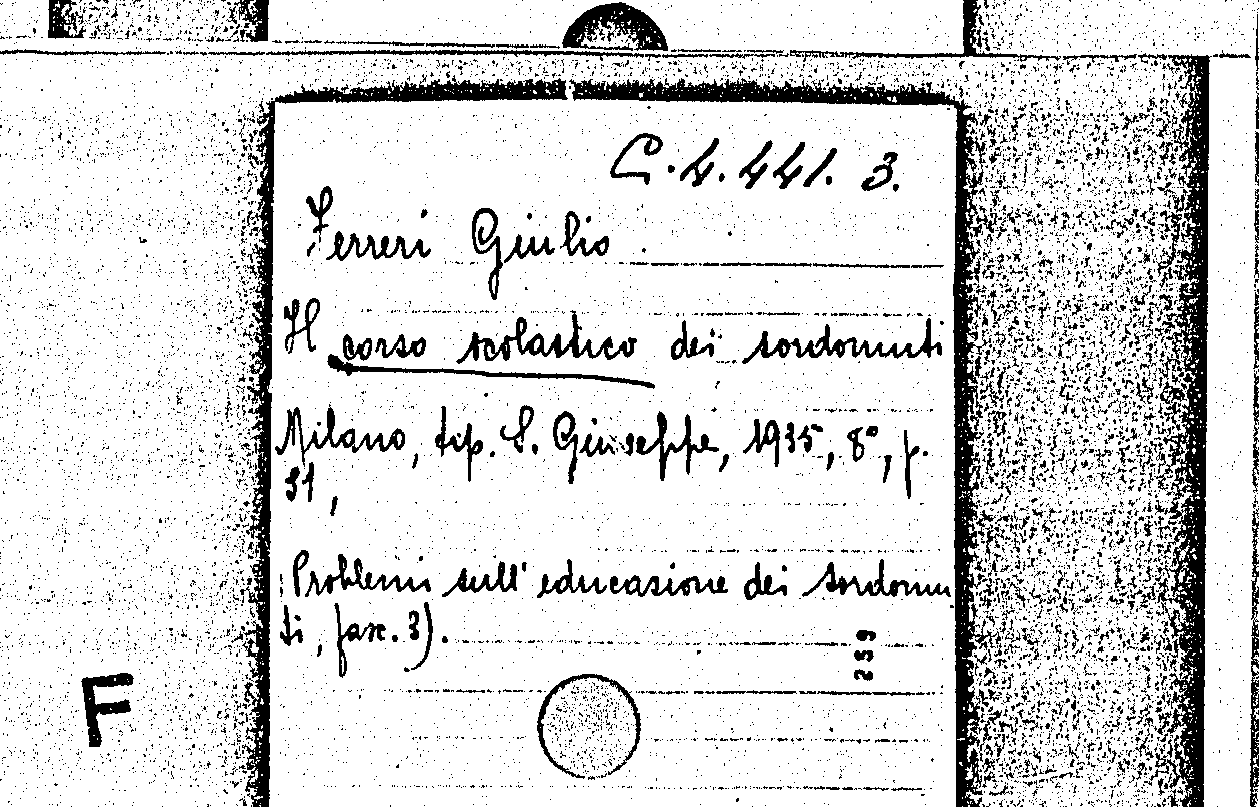 C.4.441. 3.
Ferreri Giulio.
Il corso scolastico dei sordomuti
Milano, tip. S. Giuseppe, 1935, 8°, p.
31,
(Problemi sull'educazione dei sordomu
ti, fasc. 3).
259
F